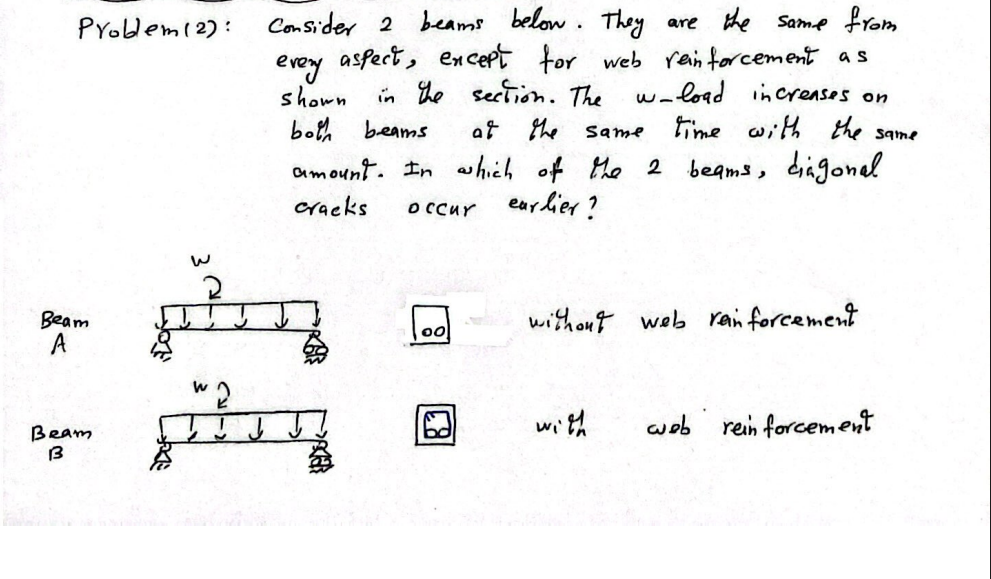 Problem(2): Consider 2 beams below. They are the same from
every aspect, except for web reinforcement as
shown in the section. The w-load increases on
both beams at the same time with the same
amount. In which of the 2 beams, diagonal
cracks occur earlier?
w
Beam
A
without web reinforcement
w
Beam
B
with web reinforcement